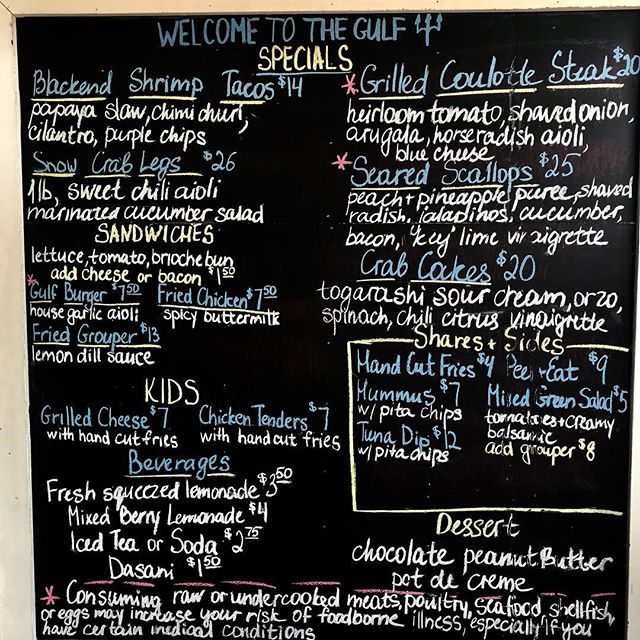 WELCOME TO THE GULF
SPECIALS
Blackend Shrimp Tacos $14
papaya slaw, chimi churi,
cilantro, purple chips
Snow Crab Legs $26
1 lb, sweet chili aioli
marinated cucumber salad
SANDWICHES
lettuce, tomato, brioche bun
add cheese or bacon $1.50
* Gulf Burger $7.50
house garlic aioli
Fried Chicken $7.50
spicy buttermilk
Fried Grouper $13
lemon dill sauce
KIDS
Grilled Cheese $7
with hand cut fries
Chicken Tenders $7
with hand cut fries
Beverages
Fresh squeezed lemonade $3.50
Mixed Berry Lemonade $4
Iced Tea or Soda $2.75
Dasani $1.50
* Grilled Coulotte Steak $20
heirloom tomato, shaved onion,
arugala, horseradish aioli,
blue cheese
* Seared Scallops $25
peach + pineapple puree, shaved
radish, cucumber,
bacon, "key" lime vinaigrette
Crab Cakes $20
togarashi sour cream, orzo,
spinach, chili citrus vinaigrette
Shares + Sides
Hand Cut Fries $4
Peel + Eat $9
Hummus $7
w/ pita chips
Mixed Green Salad $5
tomatoes + creamy
balsamic
add grouper $8
Tuna Dip $12
w/ pita chips
Dessert
chocolate peanut butter
pot de creme
* Consuming raw or undercooked meats, poultry, seafood, shellfish,
or eggs may increase your risk of foodborne illness, especially if you
have certain medical conditions